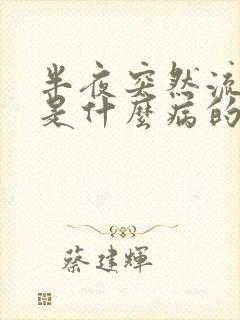 半夜突然流
是什麼病的
蔡建輝